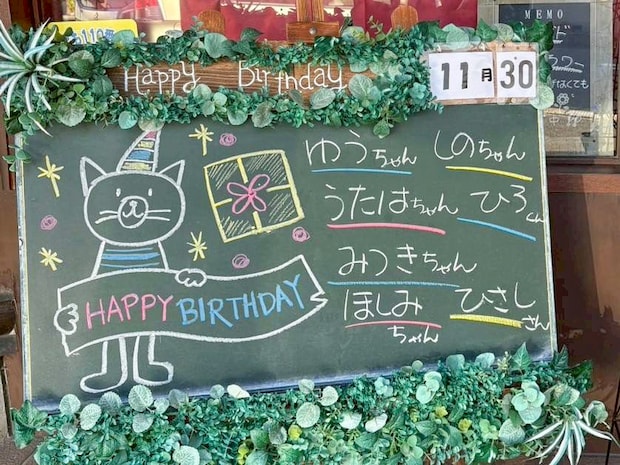 Happy Birthday
11月30
HAPPY BIRTHDAY
ゆうちゃん しのちゃん
うたはちゃん ひろくん
みつきちゃん
ほしみちゃん ひさしさん
MEMO